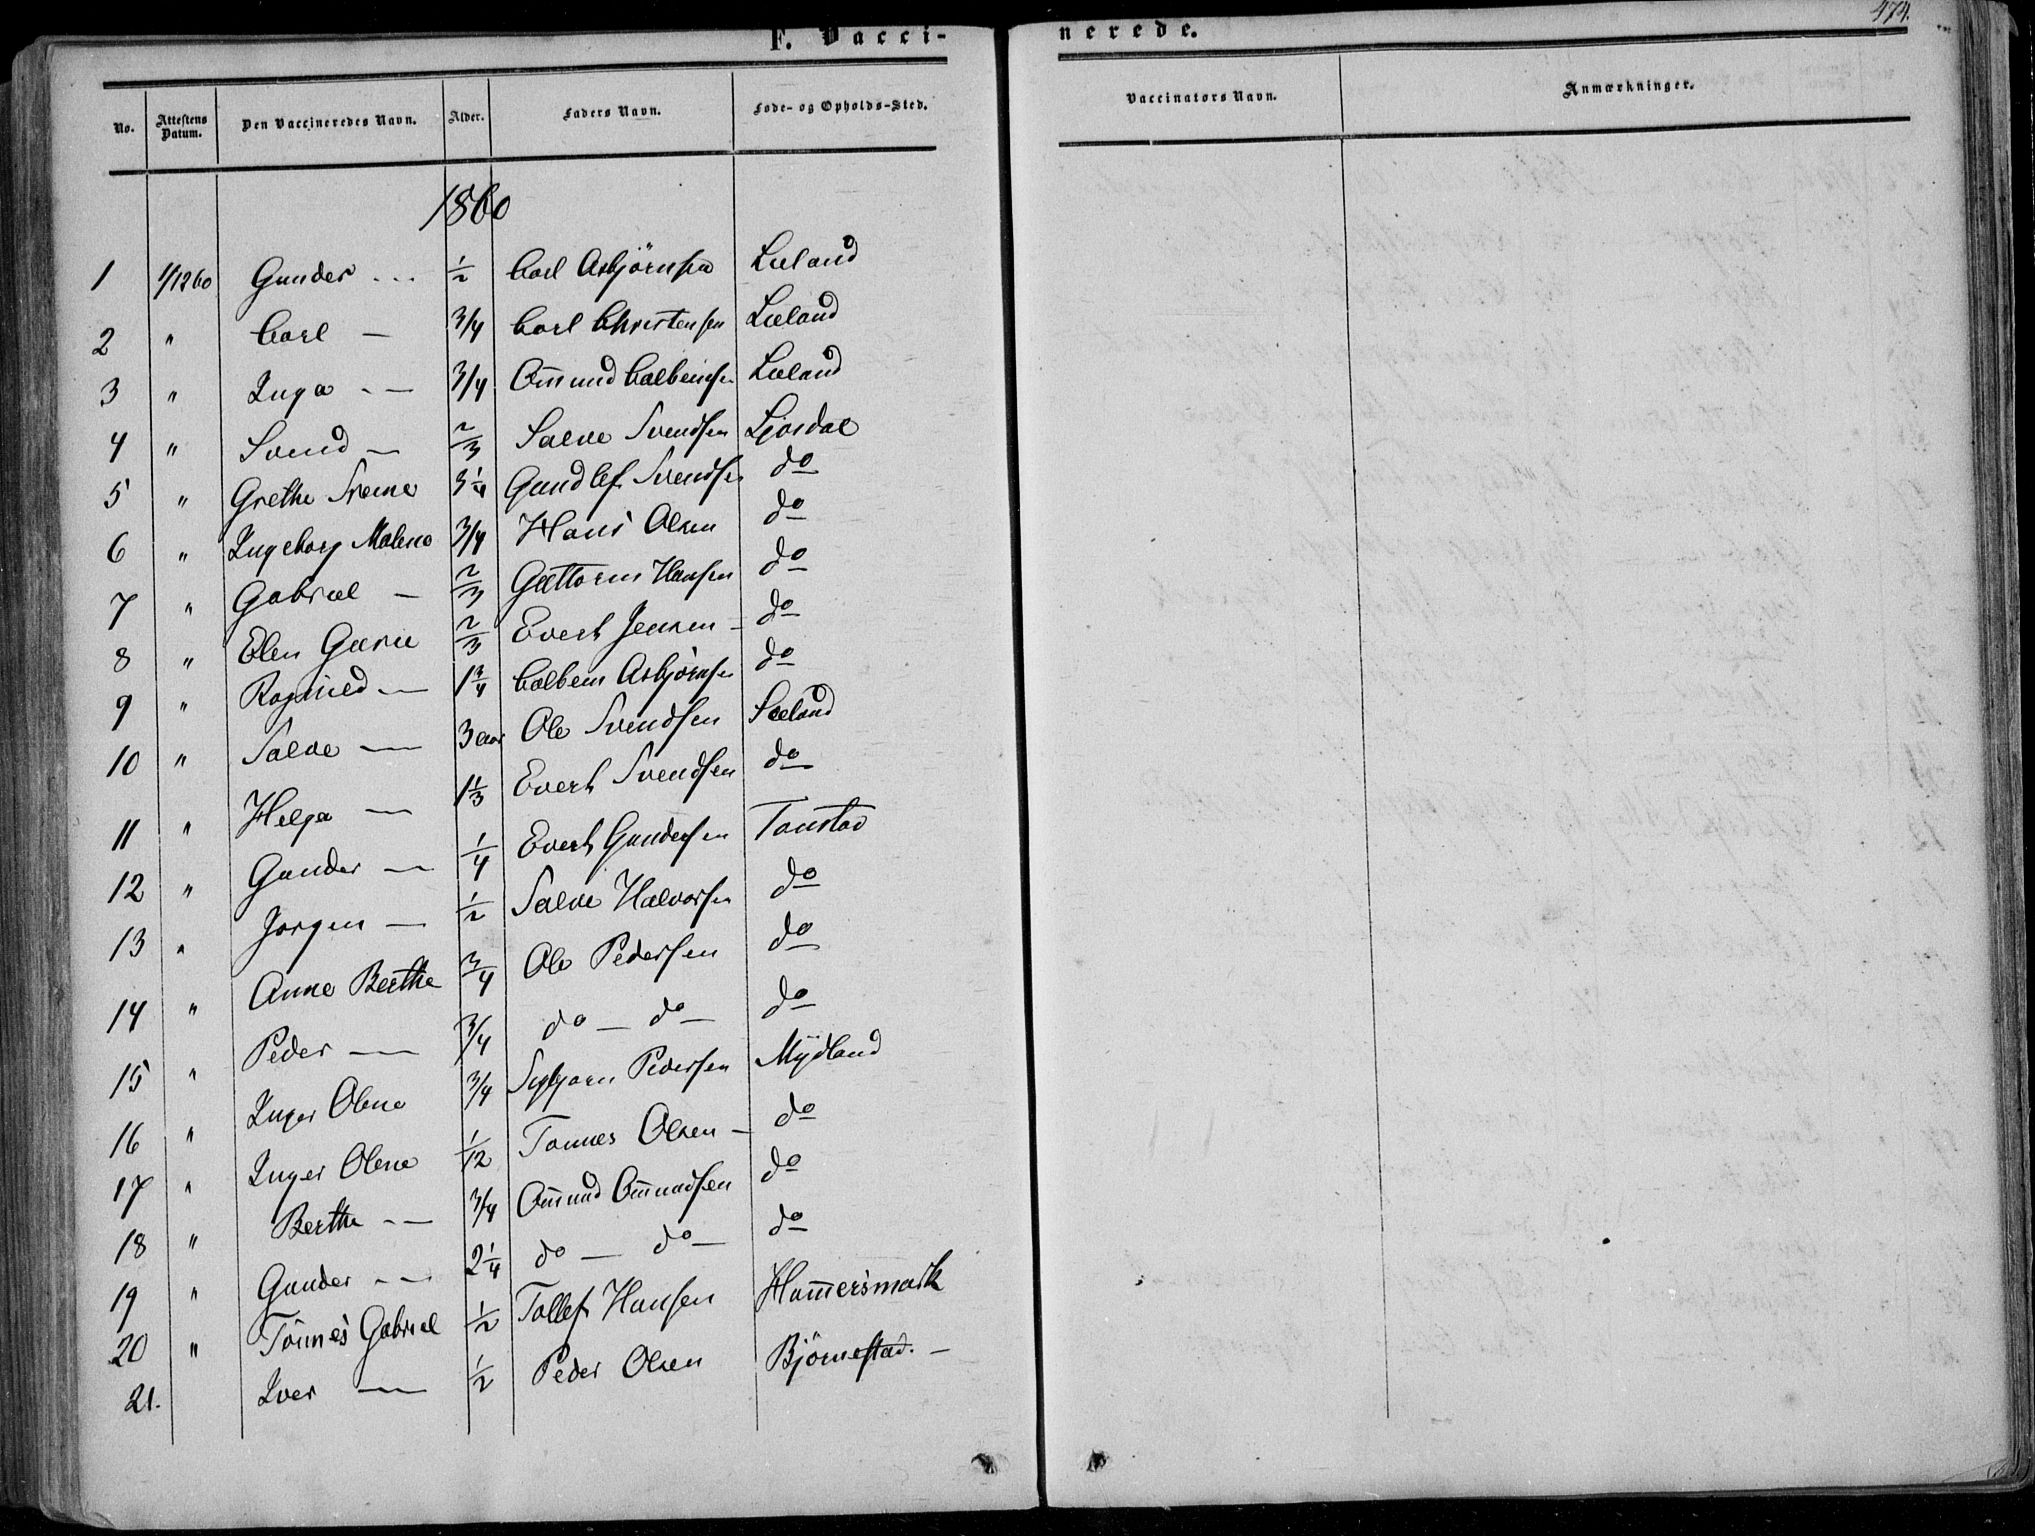 474.
F. Vacci- nerede.
No. Attestens Datum. Den Vaccineredes Navn. Alder. Faders Navn. Føde- og Opholds-Sted. Vaccinators Navn. Anmærkninger.
1860
1 1/12 60 Gunder - - - 1/2 Carl Asbjörnsen Lieland
2 " Carl — 3/4 Carl Christensen Lieland
3 " Inga - — 3/4 Om̄und Calbeinsen Lieland
4 " Svend — 2/3 Salve Svendsen Ljosdal
5 " Grethe 3 1/4 Gundlef Svendsen do
6 " Ingeborg Malene 3/4 Hans Olsen do
7 " Gabriel — 2/3 Guttorm Hansen do
8 " Elen Gurie 2/3 Evert Jensen — do
9 " Ragnild — 1 3/4 Calbein Asbjörnsen do
10 " Salve — 3 aar Ole Svendsen Sieland
11 " Helga — 1 1/3 Evert Svendsen do
12 " Gunder — 1/4 Evert Gundersen Tonstad
13 " Jorgen — 1/2 Salve Halvorsen do
14 " Anne Berthe 3/4 Ole Pedersen do
15 " Peder — 3/4 do — do — do
16 " Inger Olene 3/4 Sigbjorn Pedersen Mÿdland
17 " Inger Olene 1/12 Tonnes Olsen — do
18 " Berthe - — 3/4 Om̄und Om̄undsen do
19 " Gunder - — 2 1/4 do — do — do
20 " Tönnes Gabriel 1/2 Tollef Hansen Ham̄ersmark
21. Iver — 1/2 Peder Olsen Björnestad. —